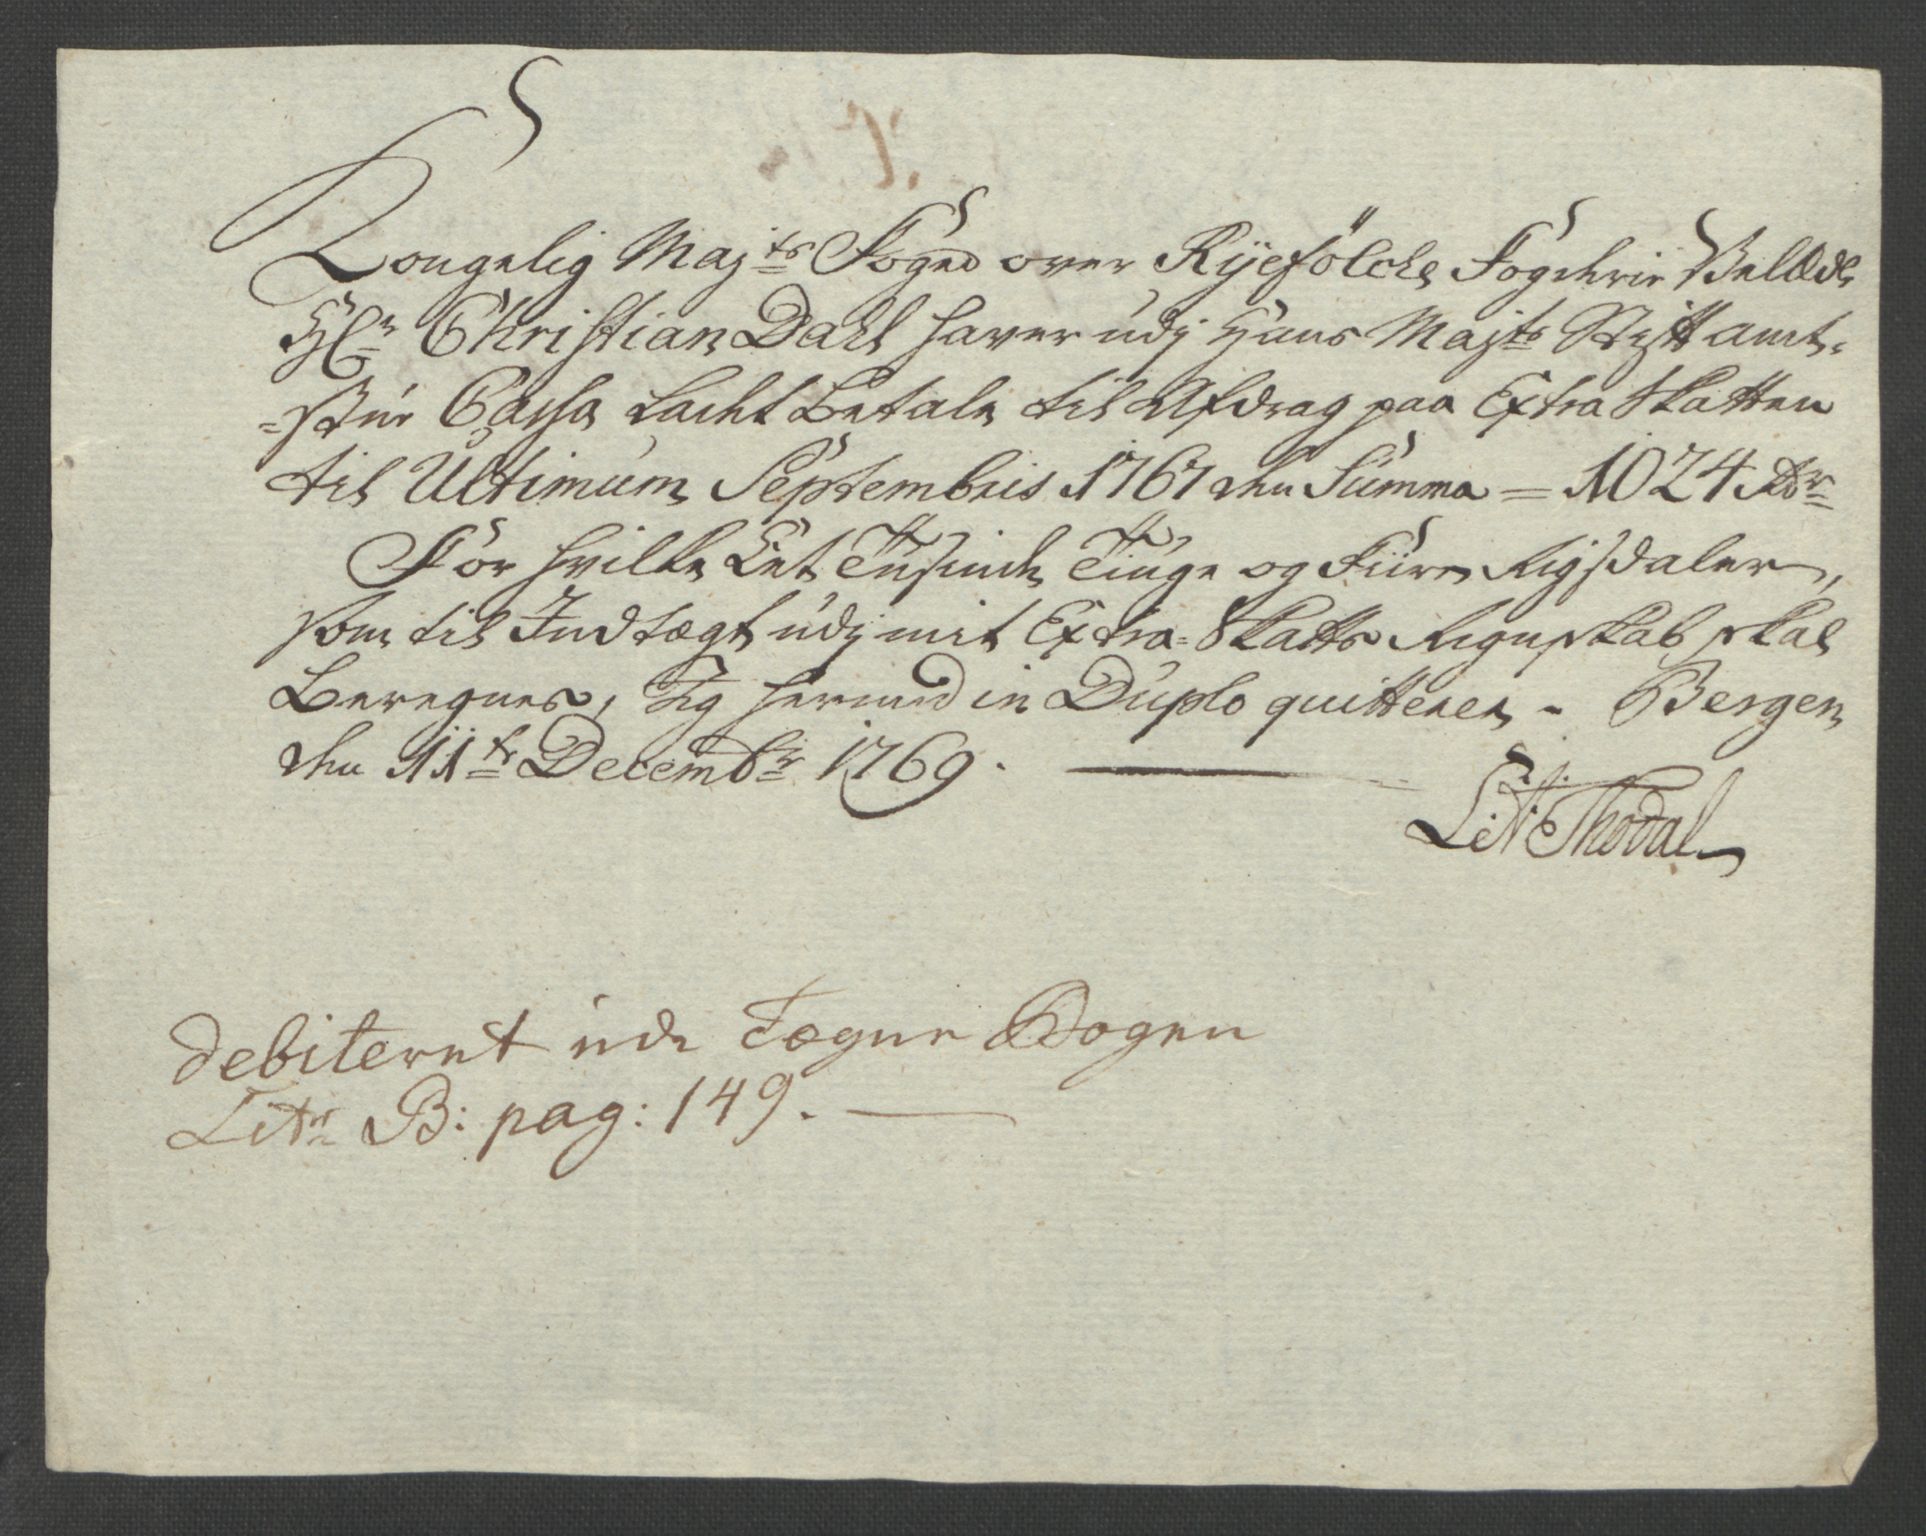 Kongelig Maj:ts Foged over Ryefölcke Fogderie Velædle
Hr. Christian Dahl haver udj Hans Majts Stift amt-
=stue Cassa ladet betale til Afdrag paa Extra Skatten
til Ultimum Septembris 1767 den Summa = 1024 Rdr
For hvilke Eet Tusinde Tiuge og Fiire Rigsdaler,
som til Indtægt udj mit Extra-Skatts Regnskab skal
Beregnes, Jeg hermed in Duplo quitterer - Bergen
den 11te Decembr 1769.
Thodal
debiteret udi Tegne Bogen
Litr B: pag: 149.